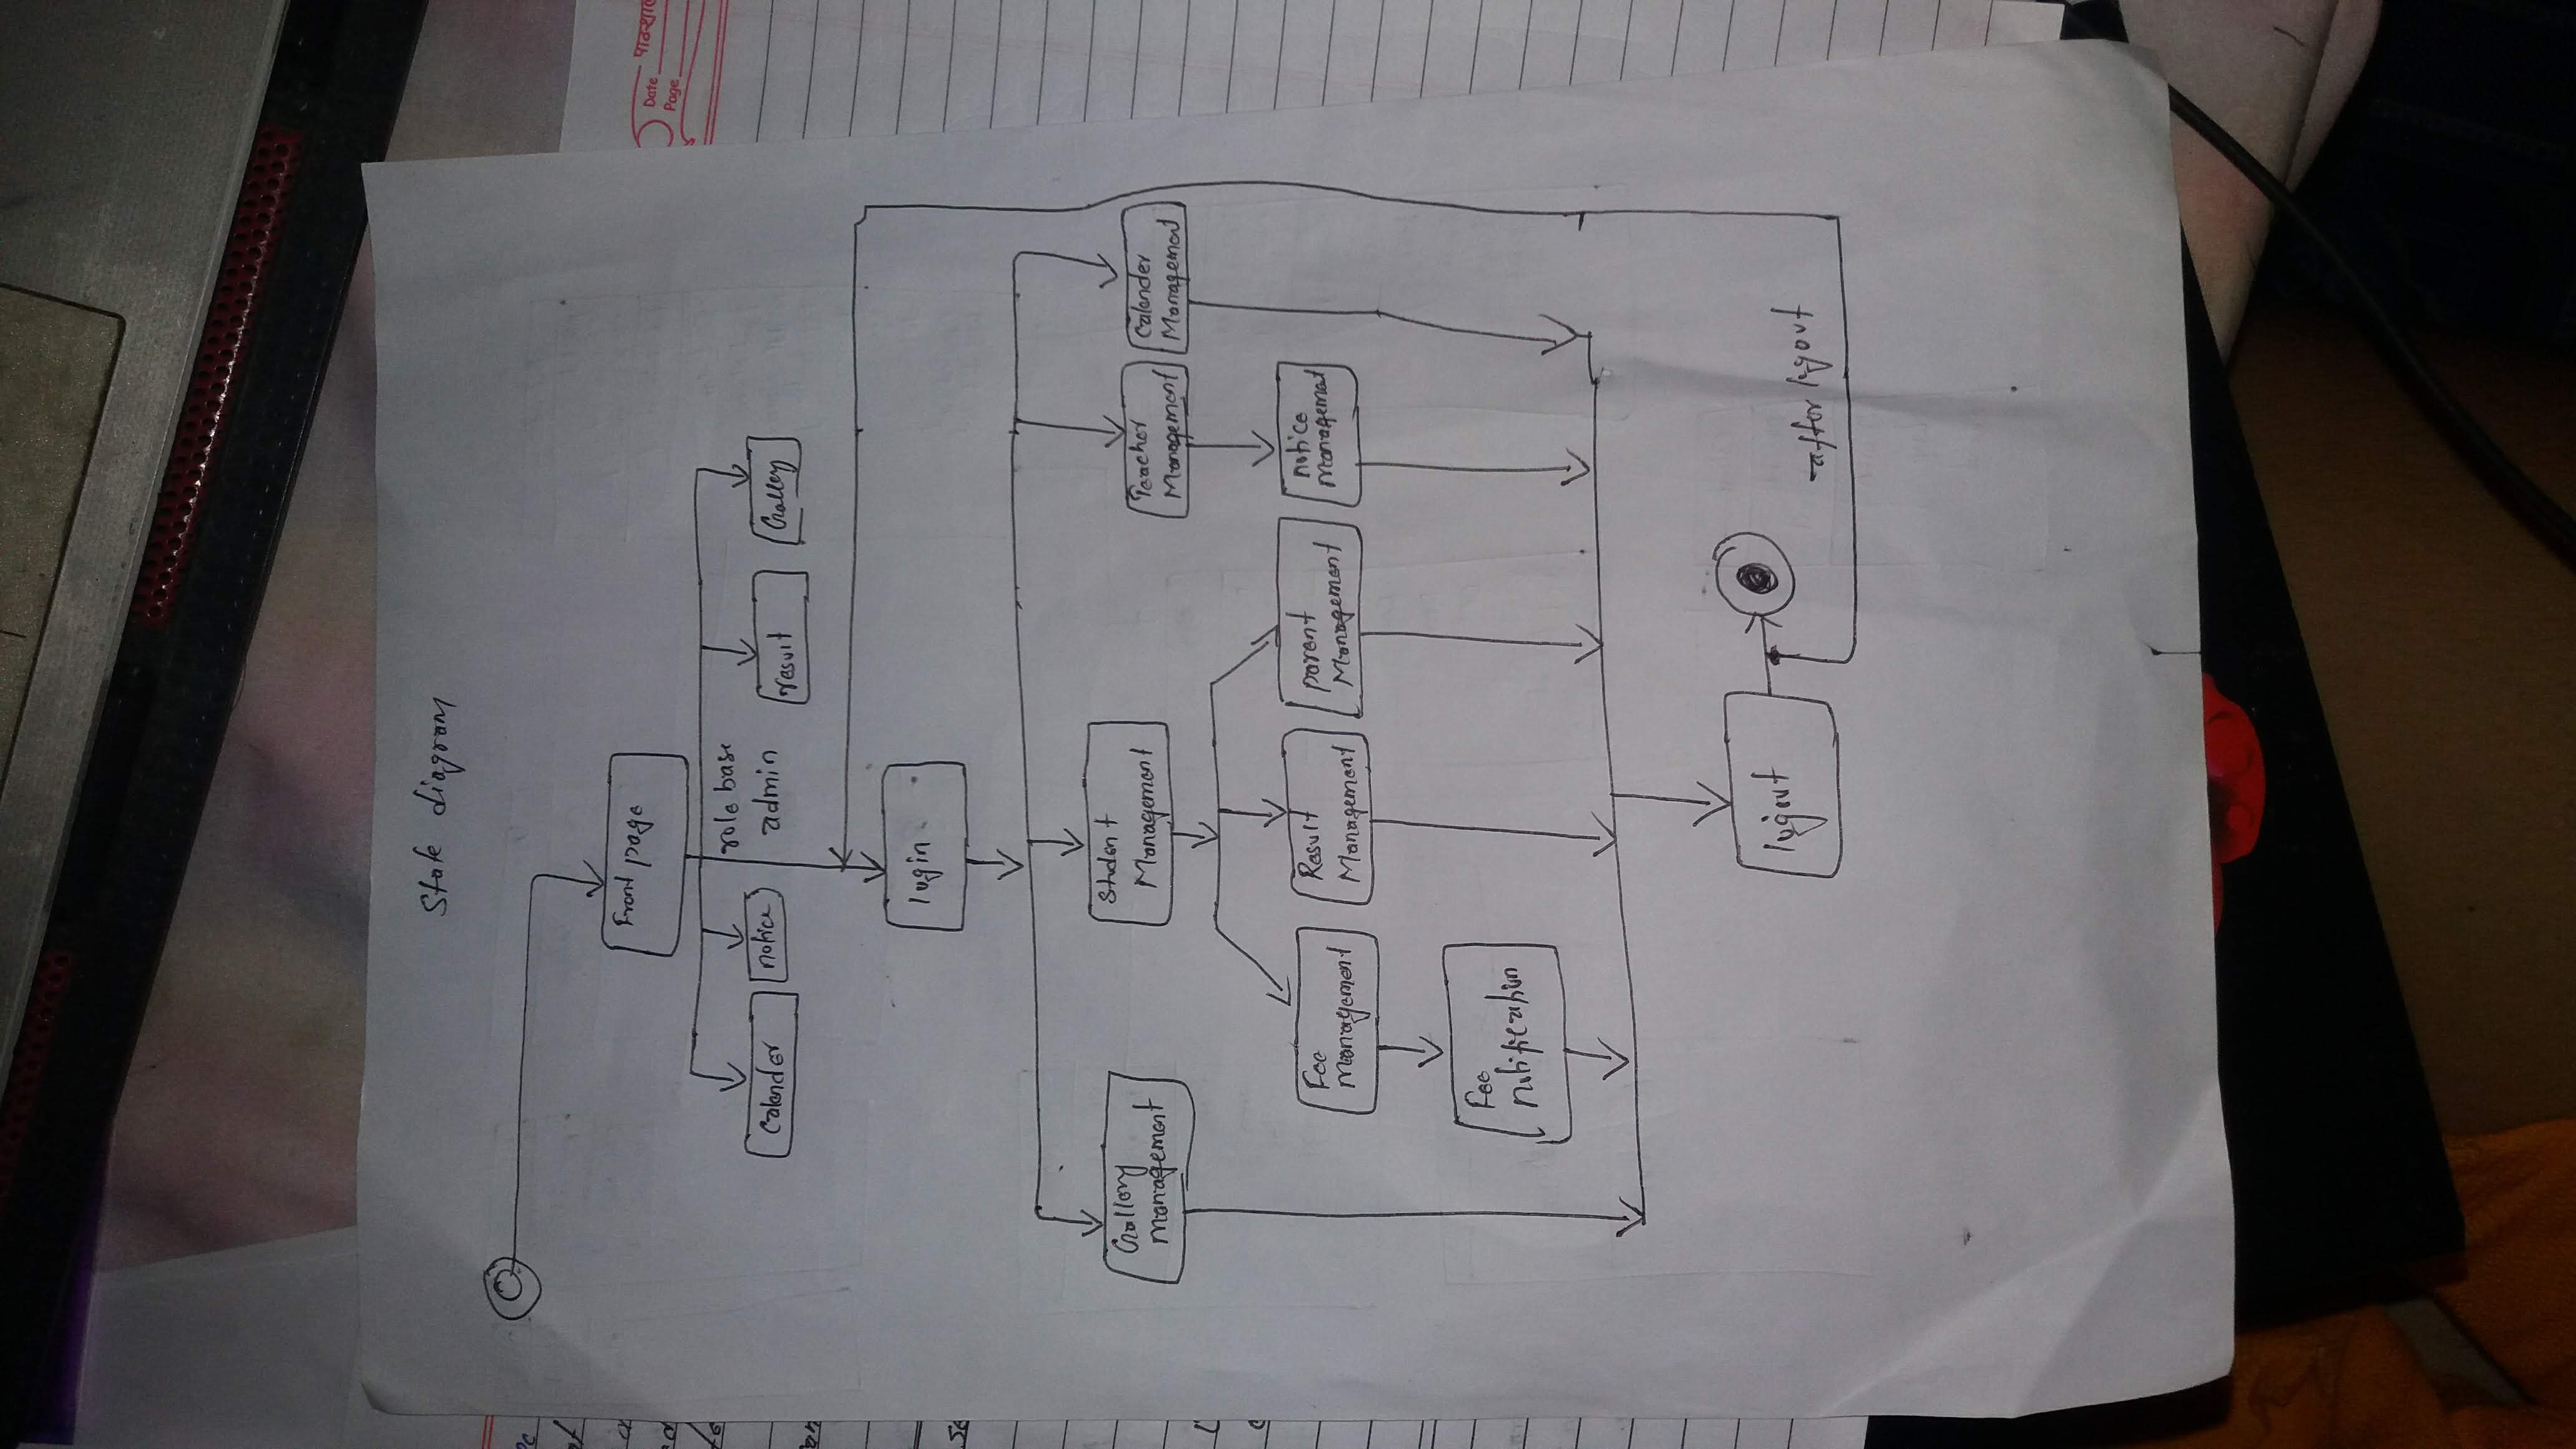 State diagram
Front page
role base
admin
Calender
notice
result
Gallery
login
Gallery
management
Student
Management
Teacher
Management
Calender
Management
Fee
Management
Result
Management
parent
Management
notice
Managemet
Fee
notification
logout
after logout
Date
Page